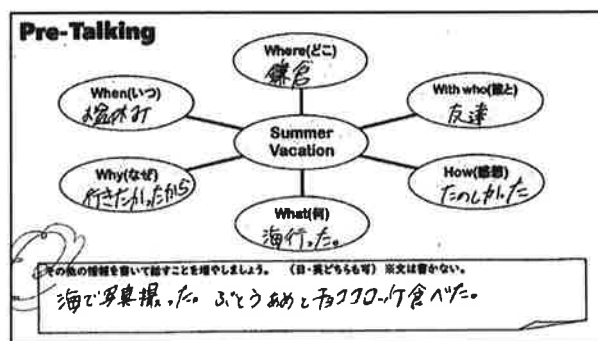 Pre-Talking
Where(どこ)
鎌倉
When(いつ)
お盆休み
With who(誰と)
友達
Summer
Vacation
Why(なぜ)
行きたかったから
How(感想)
たのしかった
What(何)
海行った。
その他の情報を書いて話すことを増やしましょう。 (日・英どちらも可) ※文は書かない。
海で写真撮った。 ぶどうあめとチョココロッケ食べた。